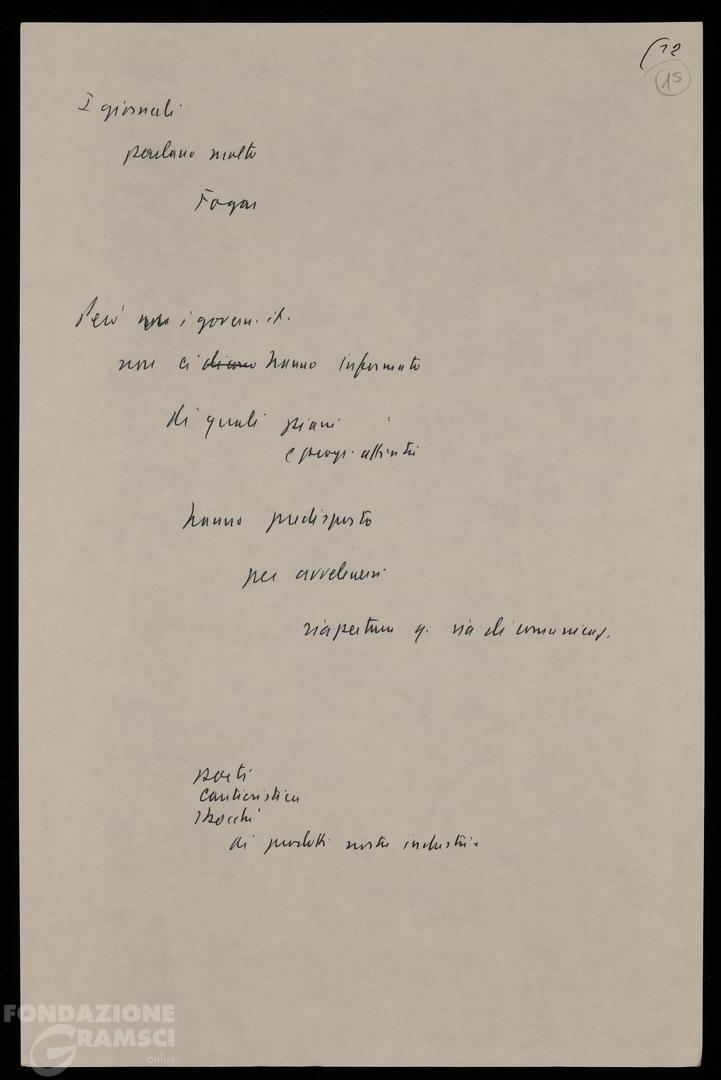 12
15
I giornali
parlano molto
Fogar
Però i govern. it.
non ci diano hanno informato
di quali piani
e progr. attività
hanno predisposto
per avvelenersi
riapertura q. via di comunicaz.
porti
cantieristica
sbocchi
di prodotti nostre industrie
FONDAZIONE
GRAMSCI
onlus